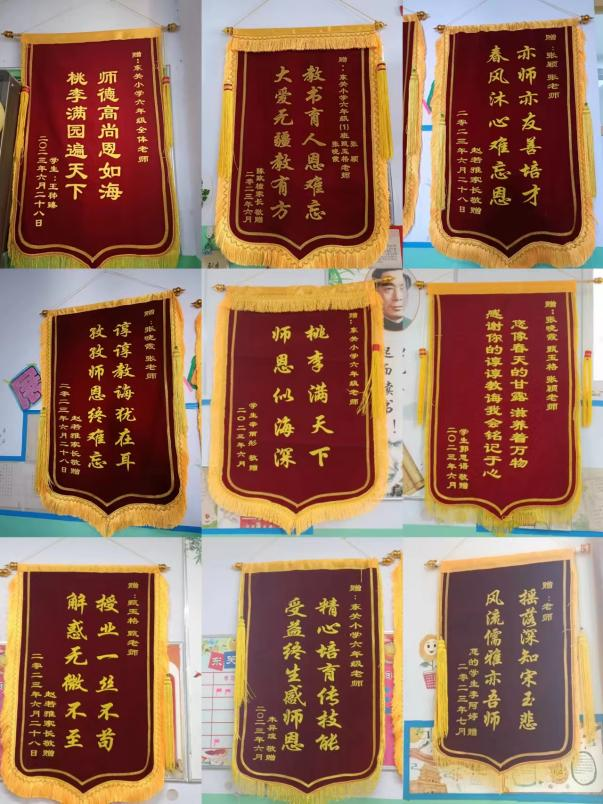 赠：东关小学六年级全体老师
师德高尚恩如海
桃李满园遍天下
学生：王梓臻
二〇二三年六月二十八日
赠：东关小学六年级(1)班甄玉格 张颖
张晓霞
教书育人恩难忘
大爱无疆教有方
家长敬赠
二零二三年六月
赠：张颖 张老师
亦师亦友善培才
春风沐心难忘恩
赵若雅家长敬赠
二零二三年六月二十八日
赠：张晓霞 张老师
谆谆教诲犹在耳
孜孜师恩终难忘
赵若雅家长敬赠
二零二三年六月二十八日
赠：东关小学六年级老师
桃李满天下
师恩似海深
学生 敬赠
二〇二三年六月
赠：张晓霞 甄玉格 张颖老师
您像春天的甘露 滋养着万物
感谢你的谆谆教诲我会铭记于心
学生郭思语敬赠
二〇二三年六月
赠：甄玉格 甄老师
授业一丝不苟
解惑无微不至
赵若雅家长敬赠
二零二三年六月二十八日
赠：东关小学六年级老师
精心培育传技能
受益终生感师恩
敬赠
二〇二三年六月
赠：老师
摇落深知宋玉悲
风流儒雅亦吾师
您的学生李阿婷 赠
二零二三年七月